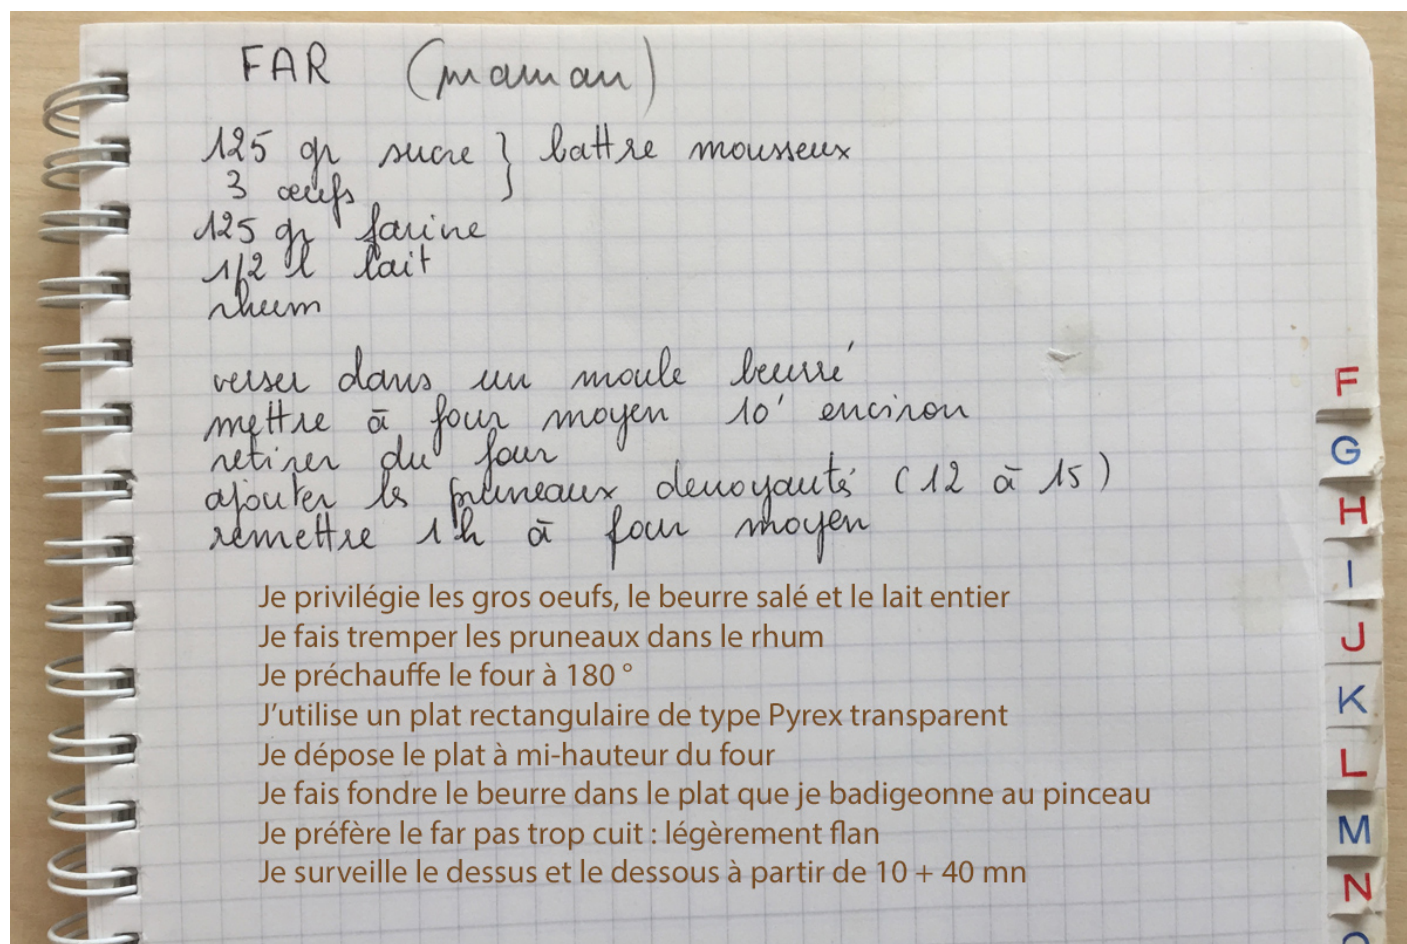 FAR (maman)
125 gr sucre } battre mousseux
3 œufs
125 gr farine
1/2 l lait
rhum
verser dans un moule beurré
mettre à four moyen 10' environ
retirer du four
ajouter les pruneaux denoyautés (12 à 15)
remettre 1h à four moyen
Je privilégie les gros oeufs, le beurre salé et le lait entier
Je fais tremper les pruneaux dans le rhum
Je préchauffe le four à 180 °
J’utilise un plat rectangulaire de type Pyrex transparent
Je dépose le plat à mi-hauteur du four
Je fais fondre le beurre dans le plat que je badigeonne au pinceau
Je préfère le far pas trop cuit : légèrement flan
Je surveille le dessus et le dessous à partir de 10 + 40 mn
F
G
H
I
J
K
L
M
N